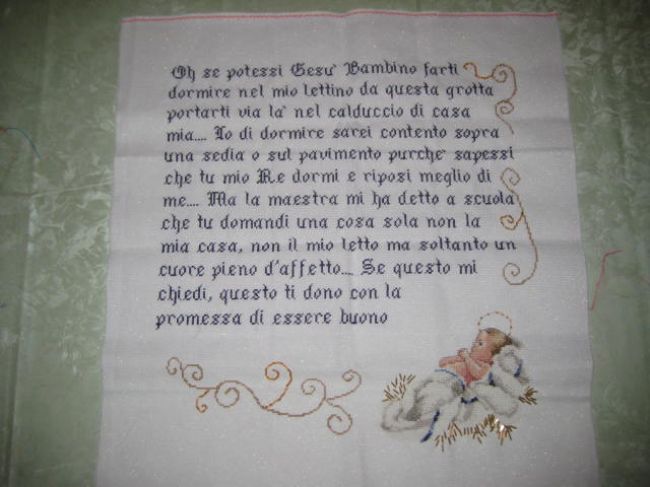 Oh se potessi Gesu' Bambino farti
dormire nel mio lettino da questa grotta
portarti via la' nel calduccio di casa
mia.... Io di dormire sarei contento sopra
una sedia o sul pavimento purche' sapessi
che tu mio Re dormi e riposi meglio di
me.... Ma la maestra mi ha detto a scuola
che tu domandi una cosa sola non la
mia casa, non il mio letto ma soltanto un
cuore pieno d'affetto.... Se questo mi
chiedi, questo ti dono con la
promessa di essere buono